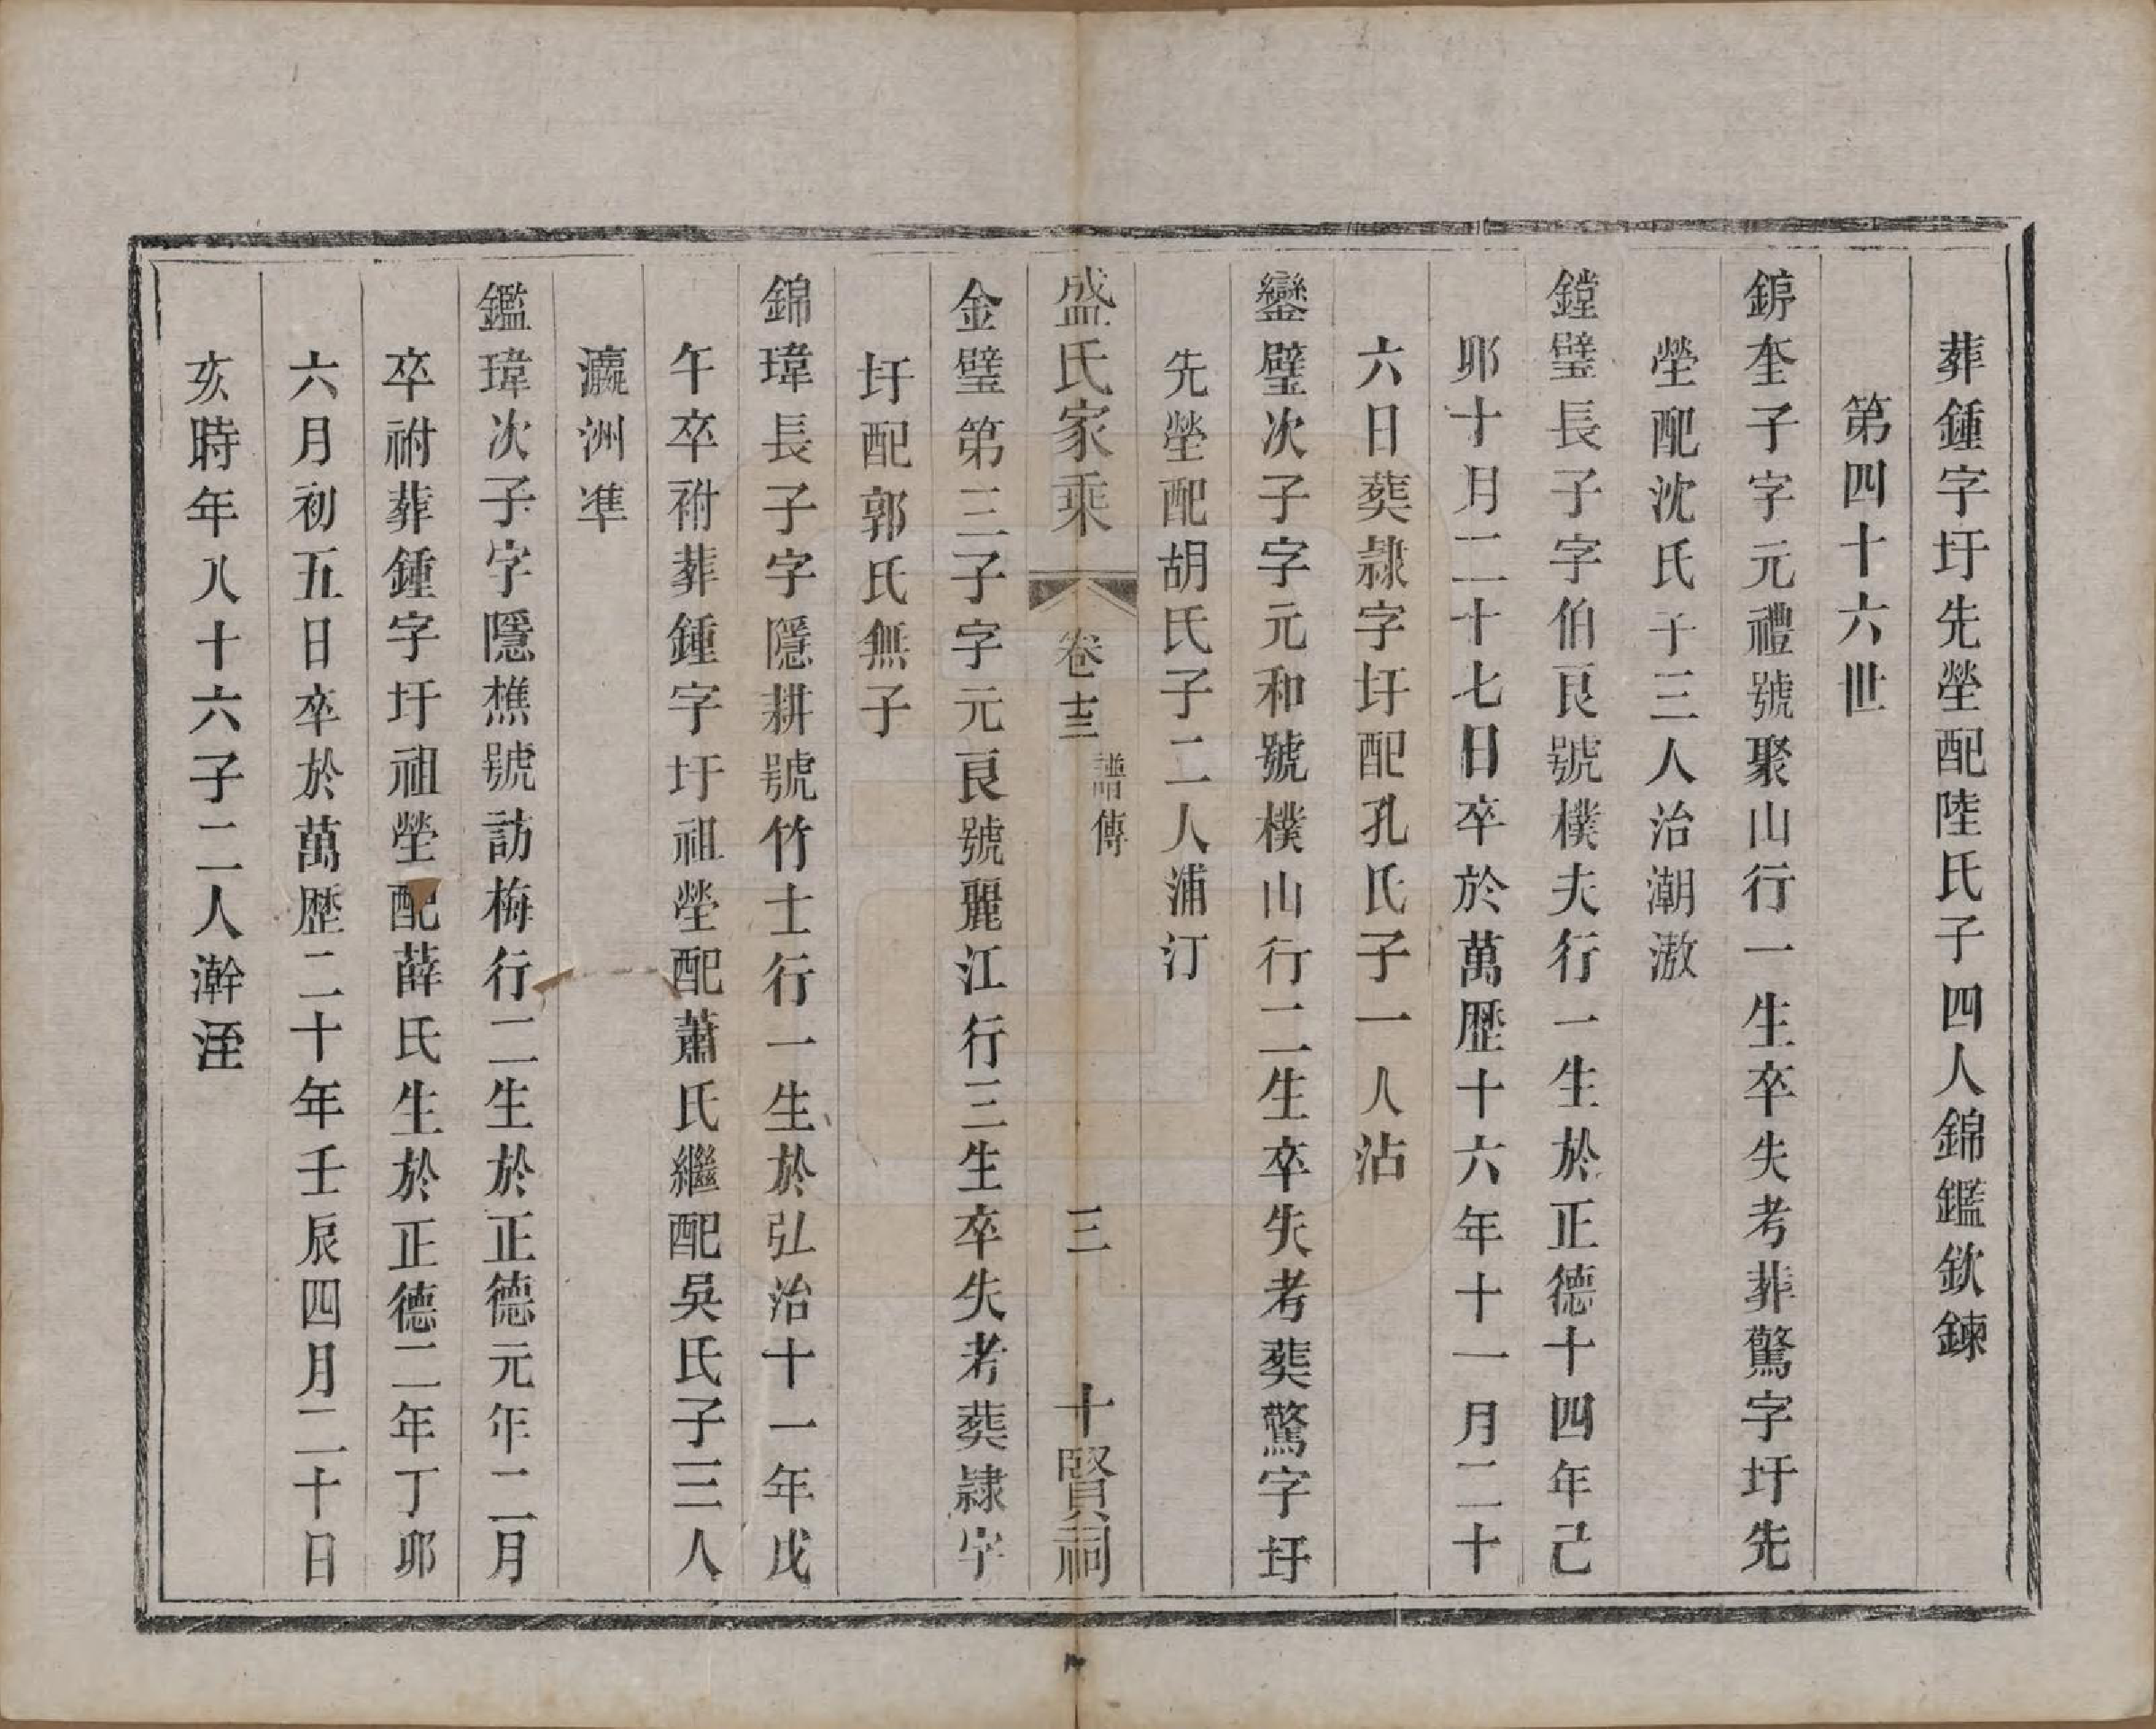 葬鍾字圩先塋配陸氏子四人錦鑑欽鍊
第四十六世
錞奎子字元禮號聚山行一生卒失考葬驚字圩先
塋配沈氏子三人治潮激
鏜璧長子字伯良號樸夫行一生於正德十四年己
卯十月二十七日卒於萬歷十六年十一月二十
六日葬隸字圩配孔氏子一人沾
鑾璧次子字元和號樸山行二生卒失考葬驚字圩
先塋配胡氏子二人浦汀
盛氏家乘 卷十三 譜傳 三 十賢祠
金璧第三子字元良號麗江行三生卒失考葬隸字
圩配郭氏無子
錦瑋長子字隱耕號竹士行一生於弘治十一年戊
午卒祔葬鍾字圩祖塋配蕭氏繼配吳氏子三人
瀛洲準
鑑瑋次子字隱樵號訪梅行二生於正德元年二月
卒祔葬鍾字圩祖塋配薛氏生於正德二年丁卯
六月初五日卒於萬歷二十年壬辰四月二十日
亥時年八十六子二人澣洷